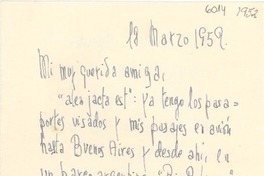 6014 1959
1a Marzo 1959.
Mi muy querida amiga,
"alea jacta est": ya tengo los pasa-
portes visados y mis pasajes en avión
hasta Buenos Aires y desde ahí, en
un barco argentino